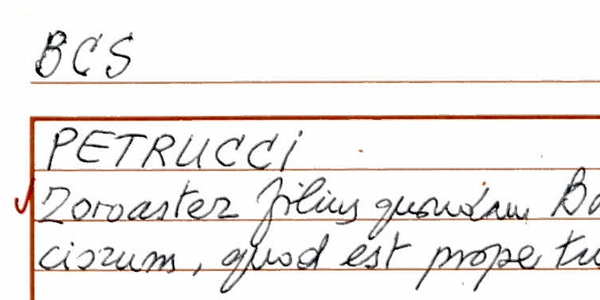 BCS
PETRUCCI
Zoroaster filius quondam Ba
ciorum, quod est prope tu